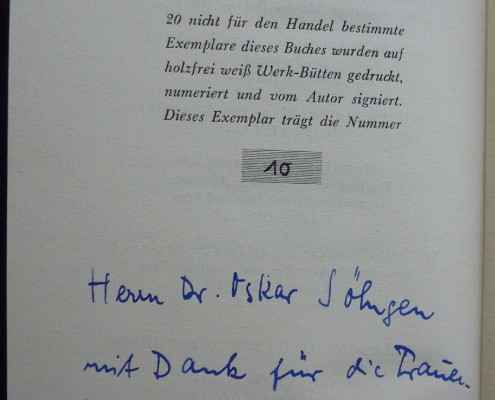 20 nicht für den Handel bestimmte
Exemplare dieses Buches wurden auf
holzfrei weiß Werk-Bütten gedruckt,
numeriert und vom Autor signiert.
Dieses Exemplar trägt die Nummer
10
Herrn Dr. Oskar Söhngen
mit Dank für die